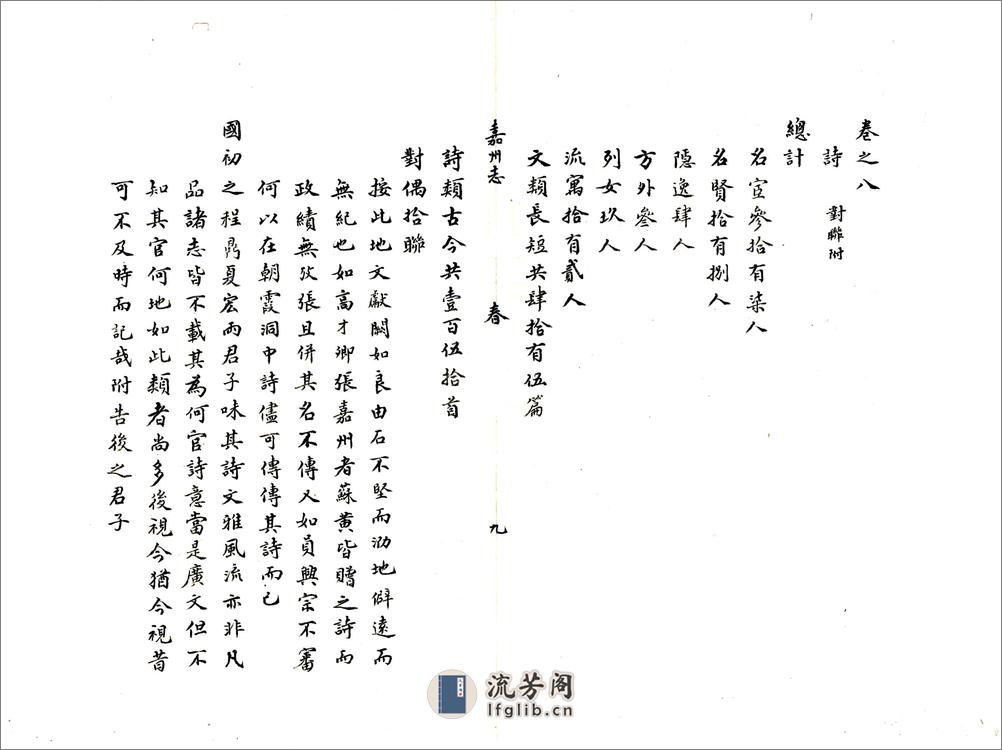 卷之八
詩 對聯附
總計
名宦參拾有柒人
名賢拾有捌人
隱逸肆人
方外叁人
列女玖人
流寓拾有貳人
文類長短共肆拾有伍篇
嘉州志 春 九
詩類古今共壹百伍拾首
對偶拾聯
按此地文獻闕如良由石不堅而泐地僻遠而
無紀也如高才卿張嘉州者蘇黃皆贈之詩而
政績無攷張且併其名不傳又如員興宗不審
何以在朝霞洞中詩儘可傳傳其詩而已
國初之程鵾夏宏兩君子味其詩文雅風流亦非凡
品諸志皆不載其為何官詩意當是廣文但不
知其官何地如此類者尚多後視今猶今視昔
可不及時而記哉附告後之君子
流芳阁
lfglib.cn